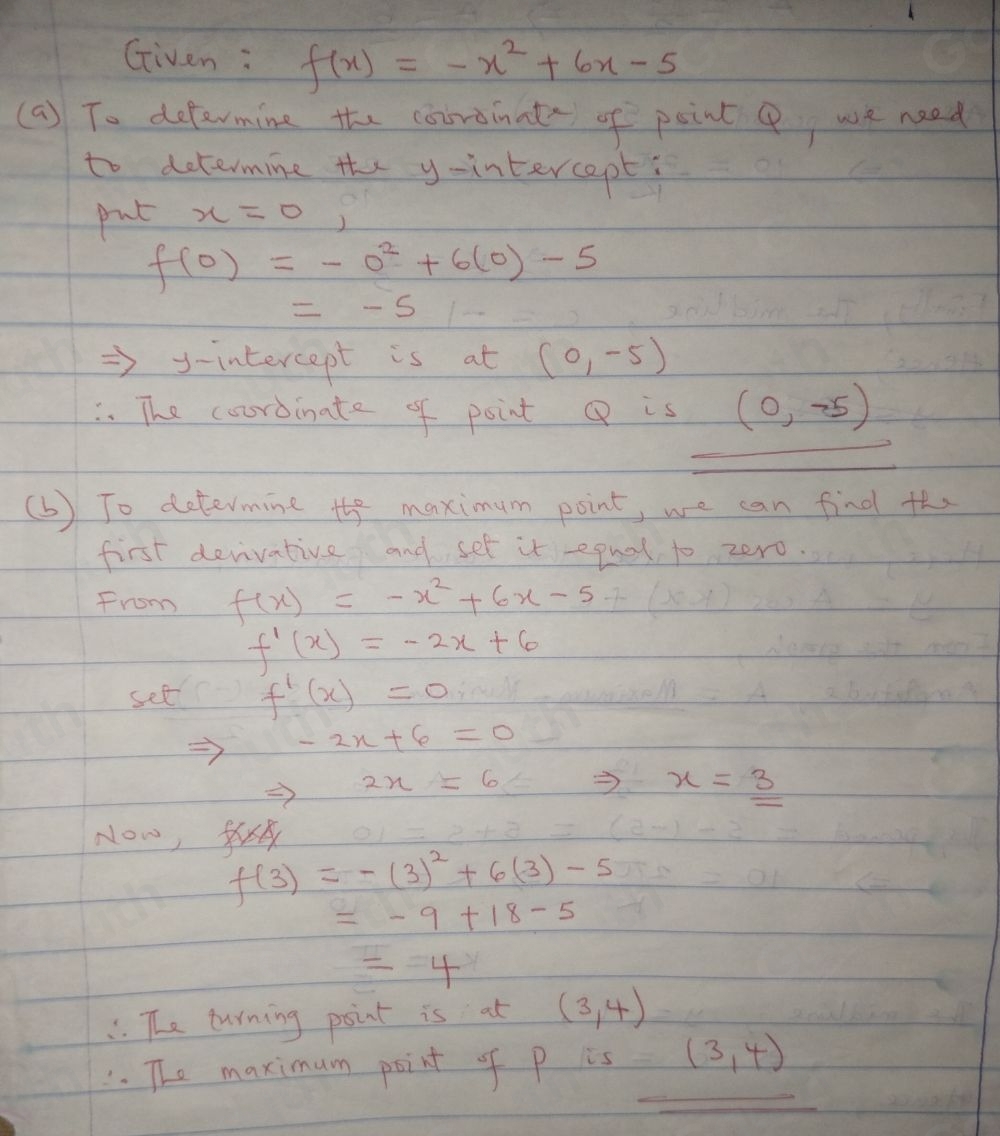 Given : f(x) = -x² + 6x - 5
(a) To determine the coordinate of point Q, we need
to determine the y-intercept:
put x = 0 ,
f(0) = - 0² + 6(0) - 5
= -5
⇒ y-intercept is at (0, -5)
∴ The coordinate of point Q is (0, -5)
(b) To determine the maximum point, we can find the
first derivative and set it equal to zero.
From f(x) = -x² + 6x - 5
f'(x) = -2x + 6
set f'(x) = 0
⇒ -2x + 6 = 0
⇒ 2x = 6 ⇒ x = 3
Now,
f(3) = -(3)² + 6(3) - 5
= -9 + 18 - 5
= 4
∴ The turning point is at (3,4)
∴ The maximum point of P is (3,4)